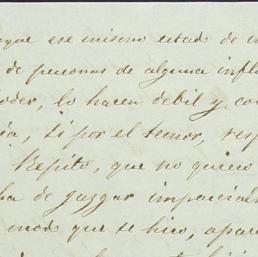 que ese mismo estado de
de personas de alguna infl
oder, lo hacen debil y co
ia, si por el temor, resp
Repito, que no quiero
ha de juzgar imparcial
modo que se hizo, apar